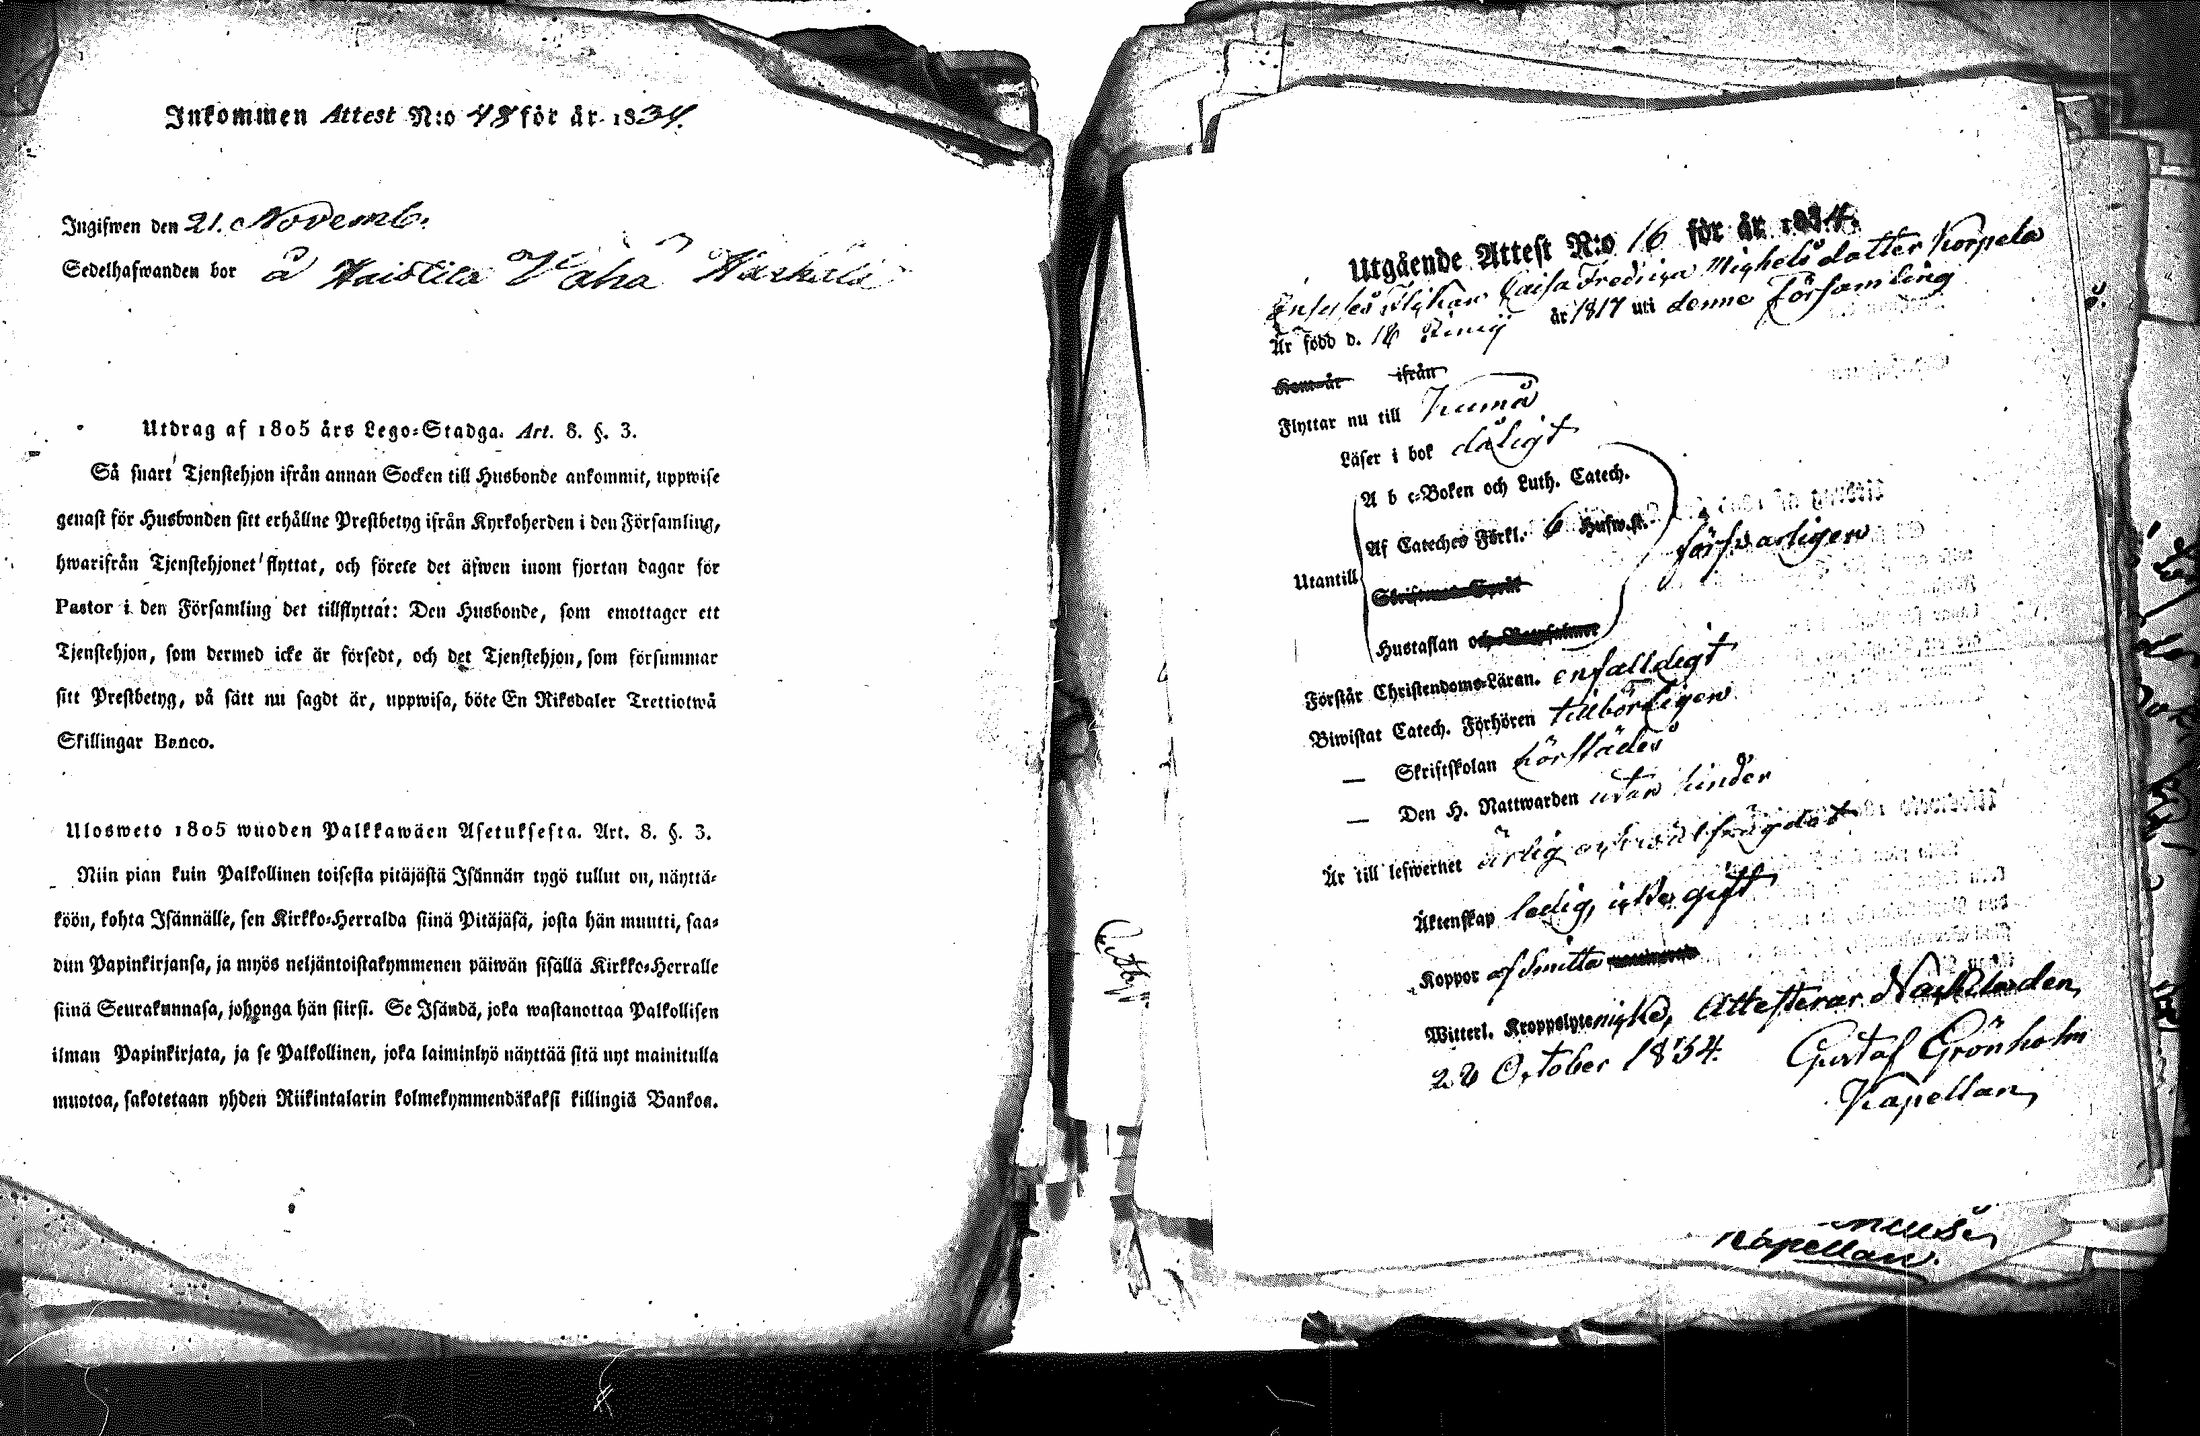 Inkommen Attest N:o 48 för år 1834.
Ingifwen den 21. Novemb:
Sedelhafwanden bor å Haistila Vähä
Utdrag af 1805 års Lego-Stadga. Art. 8. §. 3.
Så snart Tjenstehjon ifrån annan Socken till Husbonde ankommit, uppwise
genast för Husbonden sitt erhållne Prestbetyg ifrån Kyrkoherden i den Församling,
hwarifrån Tjenstehjonet flyttat, och förete det äfwen inom fjortan dagar för
Pastor i den Församling det tillflyttat: Den Husbonde, som emottager ett
Tjenstehjon, som dermed icke är försedt, och det Tjenstehjon, som försummar
sitt Prestbetyg, på sätt nu sagdt är, uppwisa, böte En Riksdaler Trettiotwå
Skillingar Banco.
Ulosweto 1805 wuoden Palkkawäen Asetuksesta. Art. 8. §. 3.
Niin pian kuin Palkollinen toisesta pitäjästä Isännän tygö tullut on, näyttä-
köön, kohta Isännälle, sen Kirkko-Herralda siinä Pitäjäsä, josta hän muutti, saa-
dun Papinkirjansa, ja myös neljäntoistakymmenen päiwän sisällä Kirkko-Herralle
siinä Seurakunnasa, johonga hän siirsi. Se Isändä, joka wastanottaa Palkollisen
ilman Papinkirjata, ja se Palkollinen, joka laiminlyö näyttää sitä nyt mainitulla
muotoa, sakotetaan yhden Riikintalarin kolmekymmendäkaksi killingiä Bankoa.
Utgående Attest N:o 16 för år 1834.
Flickan Caisa Fredrica Michelsdotter Korpela
Är född d. 18 Junij år 1817 uti denne Församling
Kom år ifrån
Flyttar nu till Kumå
Läser i bok dåligt
A b c-Boken och Luth. Catech.
Af Cateches Förkl. 6 Hufw.st. försvarligen
Utantill
Skriftenes Språk
Hustaflan och Botpsalmer
Förstår Christendoms-Läran. enfalldigt
Biwistat Catech. Förhören tillbörligen
— Skriftskolan härstädes
— Den H. Nattwarden utan hinder
Är till lefwernet ärlig och wälfrägdat
Äktenskap ledig, icke gift
Koppor af Smitta
Witterl. Kroppslyte nicke, Attesterar Nackila den
28 October 1834. Gustaf Grönholm
Kapellan,
Kapellan.